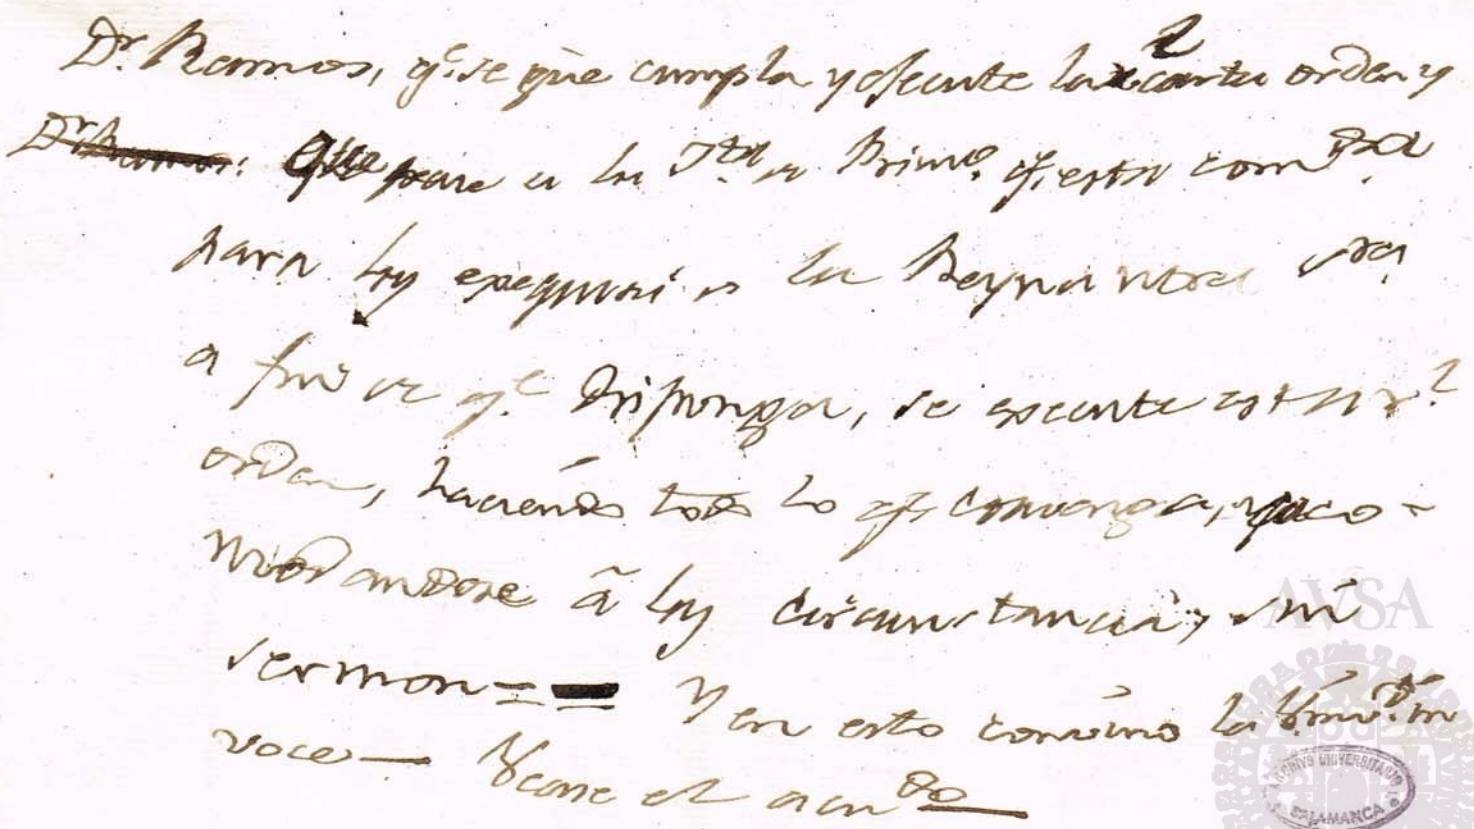 Dr. Ramos, qe. se que cumpla y efecute la carta orden y
Dr Ramos: Que pase a la Jta. a Primo. qe. esta com.da
para las exequias de la Reyna ntra sra.
a fin de qe. disponga, se execute esta Rl.
orden, haciendo todo lo qe. convenga, y aco-
modandose à las circunstancias, sin
sermon = Y en esto convino la Univd. in
voce — Vease el acudo
AVSA
ARCHIVO UNIVERSITARIO
SALAMANCA